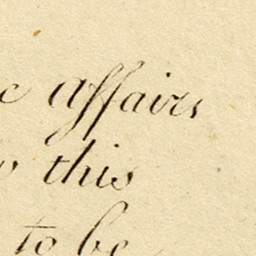 affairs
this
to be